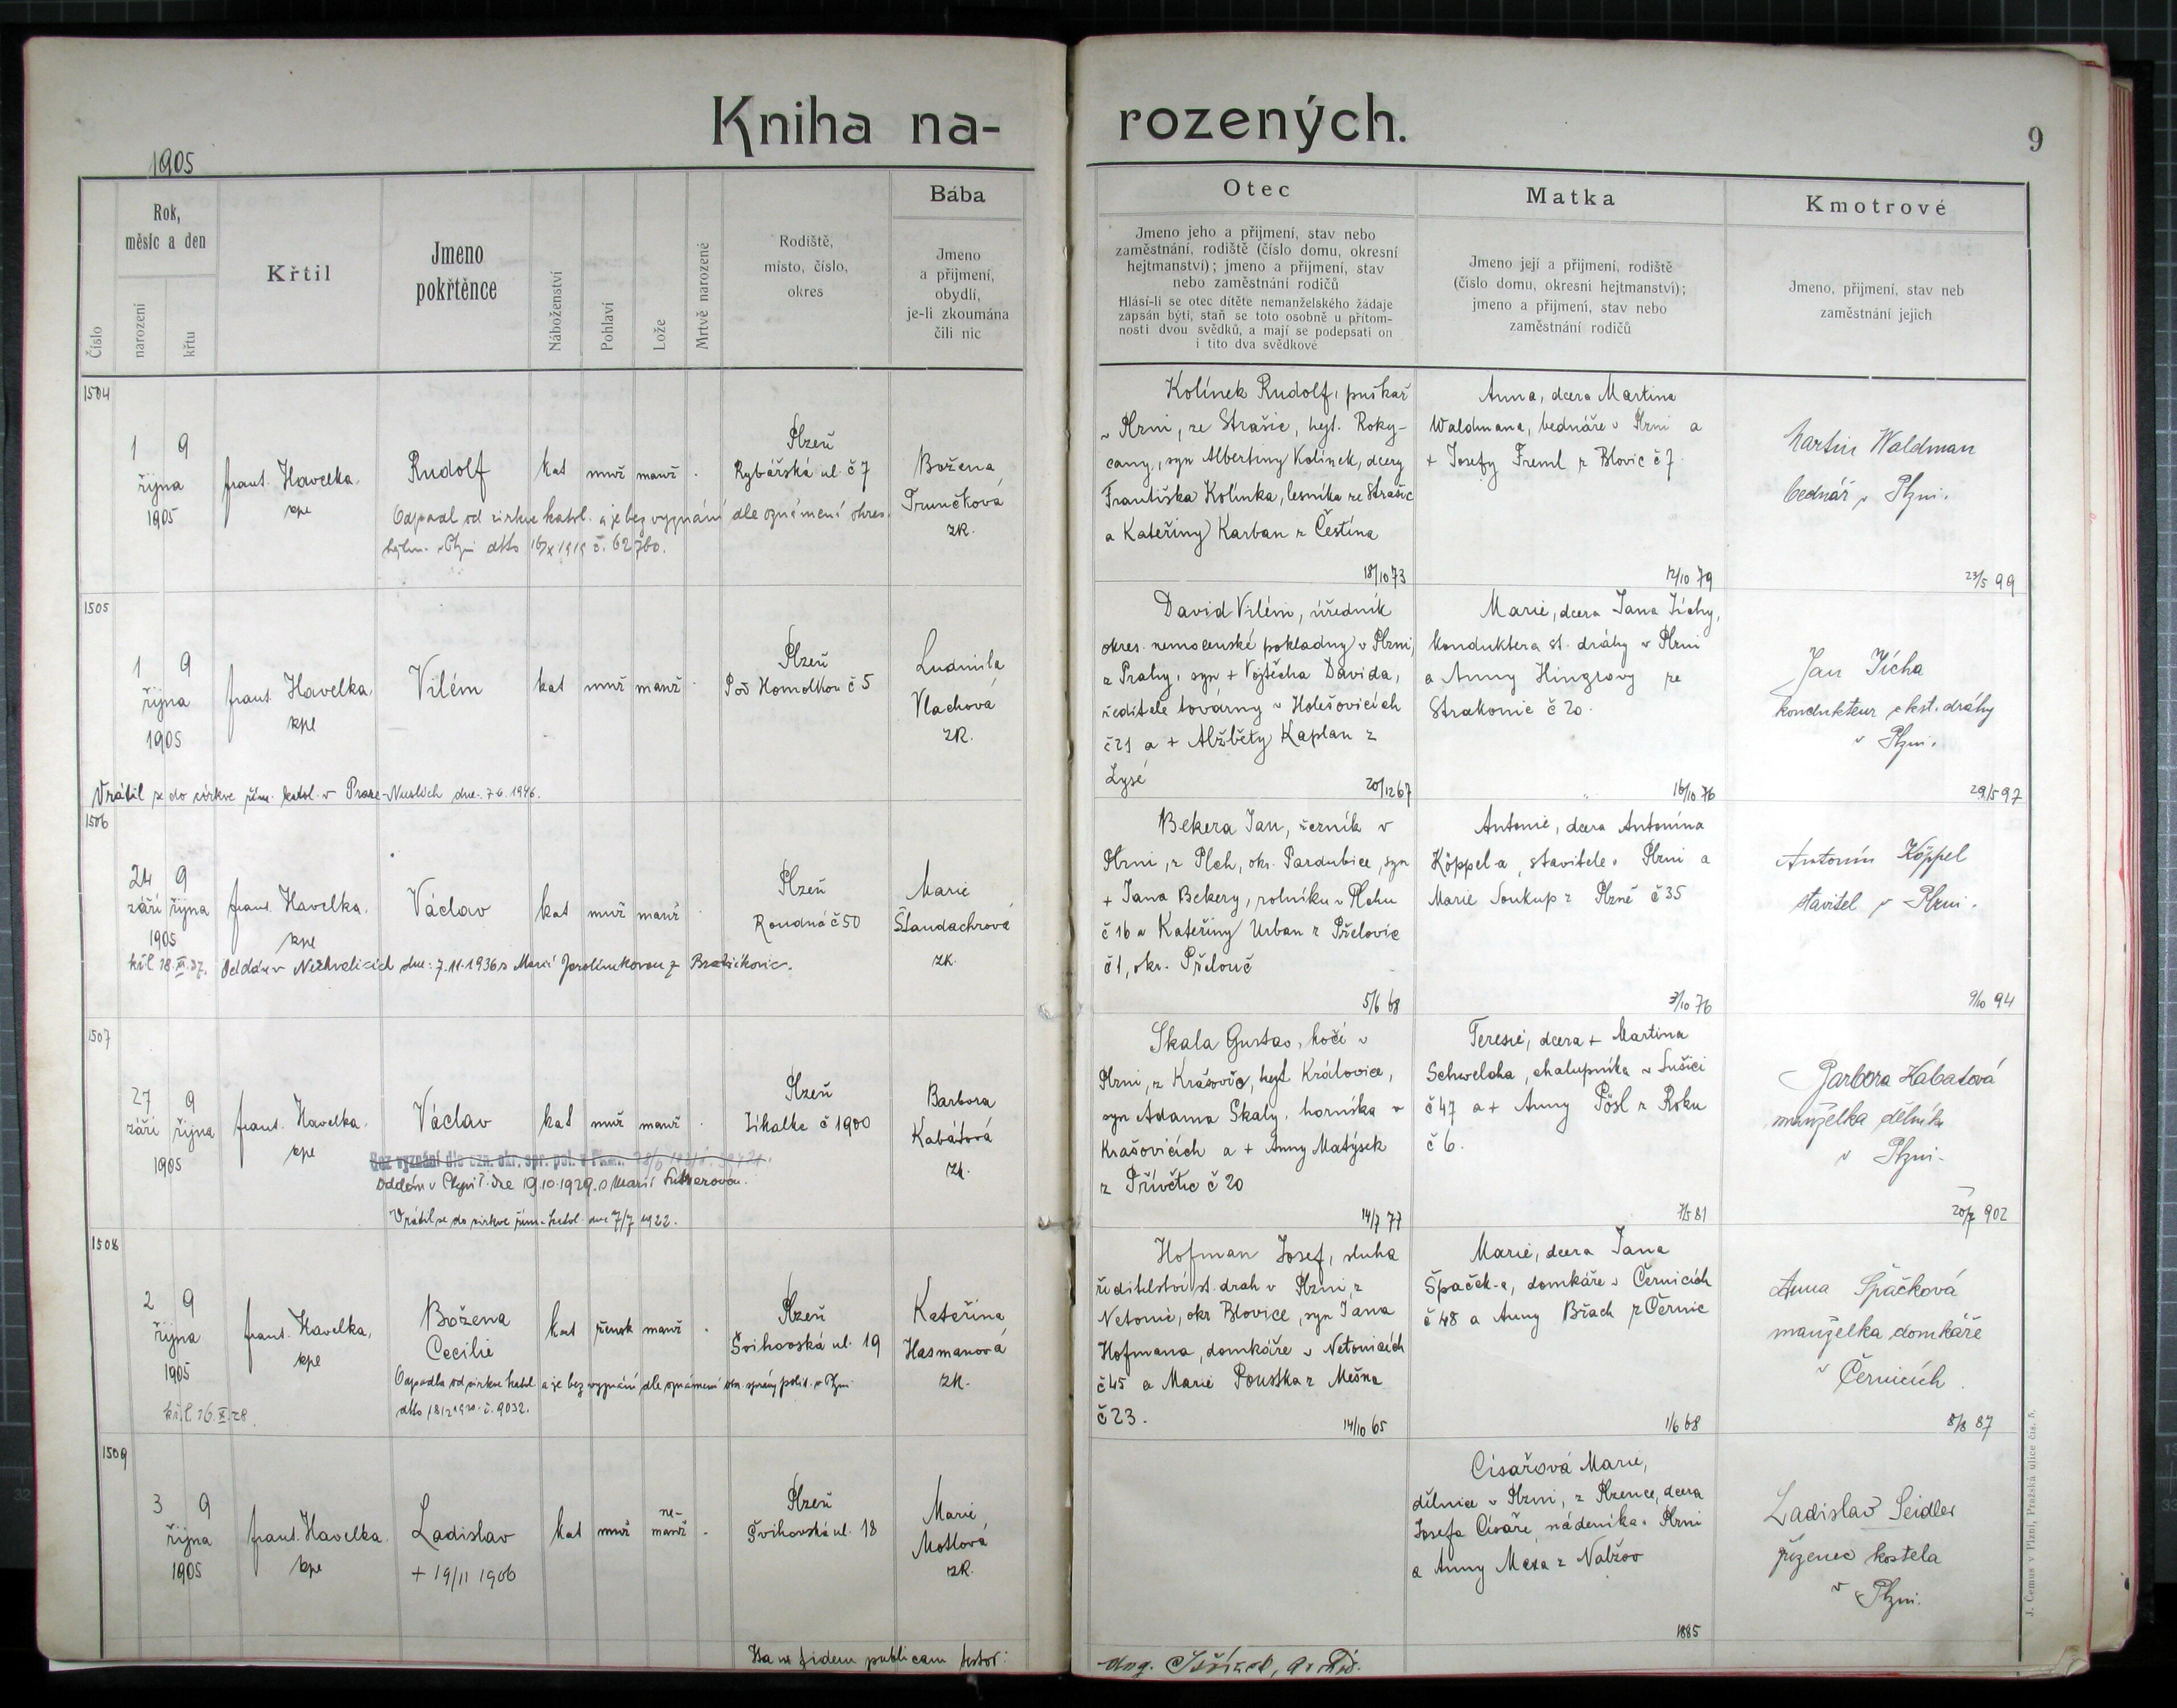 Kniha na-
rozených.
9
1905
Číslo
Rok,
měsíc a den
narození
křtu
Křtil
Jmeno
pokřtěnce
Náboženství
Pohlaví
Lože
Mrtvě narozené
Rodiště,
místo, číslo,
okres
Bába
Jmeno
a přijmení,
obydlí,
je-li zkoumána
čili nic
Otec
Jmeno jeho a přijmení, stav nebo
zaměstnání, rodiště (číslo domu, okresní
hejtmanství); jmeno a přijmení, stav
nebo zaměstnání rodičů
Hlásí-li se otec dítěte nemanželského žádaje
zapsán býti, staň se toto osobně u přítom-
nosti dvou svědků, a mají se podepsati on
i tito dva svědkové
Matka
Jmeno její a přijmení, rodiště
(číslo domu, okresní hejtmanství);
jmeno a přijmení, stav nebo
zaměstnání rodičů
Kmotrové
Jmeno, přijmení, stav neb
zaměstnání jejich
1504
1 9
října
1905
frant. Havelka,
kpe
Rudolf
kat muž manž .
Plzeň
Rybářská ul. č 7
Božena
Trunčková
zk.
Odpadl od církve katol. a je bez vyznání dle oznámení okres.
hejtm. v Plzni ddto 16/X 1919 č. 62760.
Kolínek Rudolf, puškař
v Plzni, ze Strašic, hejt. Roky-
cany, syn Albertiny Kolínek, dcery
Františka Kolínka, lesníka ze Strašic
a Kateřiny Karban z Čestína
18/10 73
Anna, dcera Martina
Waldmana, bednáře v Plzni a
+ Josefy Freml z Blovic č 7.
12/10 79
Martin Waldman
bednář v Plzni.
23/5 99
1505
1 9
října
1905
frant. Havelka,
kpe
Vilém
kat muž manž .
Plzeň
Pod Homolkou č 5
Ludmila
Vlachová
zk.
Vrátil se do církve řím. katol. v Praze-Nuslích dne 7.6.1946.
David Vilém, úředník
okres. nemocenské pokladny v Plzni,
z Prahy, syn + Vojtěcha Davida,
ředitele továrny v Holešovicích
č 21 a + Alžběty Kaplan z
Lysé
20/12 67
Marie, dcera Jana Tichy,
konduktera st. dráhy v Plzni
a Anny Hinzlovy ze
Strakonic č 20.
16/10 76
Jan Tícha
kondukteur c.k.st. dráhy
v Plzni.
29/5 97
1506
24 9
září října
1905
frant. Havelka,
kpe
Václav
kat muž manž .
Plzeň
Roudná č 50
Marie
Štaudachrová
zk.
kř.l. 18.XI.37.
Oddán v Nezhvalicích dne: 7.11.1936 s Marií Jarolímkovou z
Bekera Jan, řezník v
Plzni, z Plch, okr. Pardubice, syn
+ Jana Bekery, rolníku v Plchu
č 16 a Kateřiny Urban z Přelovic
č 1, okr. Přelouč
5/6 68
Antonie, dcera Antonína
Köppel-a, stavitele v Plzni a
Marie Soukup z Plzně č 35
3/10 76
Antonín Köppel
stavitel v Plzni.
9/10 94
1507
27 9
září října
1905
frant. Havelka,
kpe
Václav
kat muž manž .
Plzeň
Jíkalka č 1900
Barbora
Kabátová
zk.
Bez vyznání dle ozn. okr. spr. pol. v Plzni.
Oddán v Plzni dne 19.10.1929 s Marií
Vrátil se do církve řím.-katol. dne 7/7 1922.
Skala Gustav, kočí v
Plzni, z Krašovic, hejt Královice,
syn Adama Skaly, horníka v
Krašovicích a + Anny Matýsek
z Přívětic č 20
14/7 77
Teresie, dcera + Martina
Schwelcha, chalupníka v Sušici
č 47 a + Anny Pösl z Roku
č 6.
7/5 81
Barbora Kabatová
manželka dělníka
v Plzni.
20/7 902
1508
2 9
října
1905
frant. Havelka,
kpe
Božena
Cecilie
kat žensk manž .
Plzeň
Švihovská ul. 19
Kateřina
Hasmanová
zk.
Odpadla od církve katol. a je bez vyznání dle oznámení okr. správy polit. v Plzni
ddto 18/2 1920. č. 9032.
kř.l. 16.X.28.
Hofman Josef, sluha
ředitelství st. drah v Plzni, z
Netonic, okr Blovice, syn Jana
Hofmana, domkáře v Netonicích
č 45 a Marie Pouska z Mešna
č 23.
14/10 65
Marie, dcera Jana
Špaček-a, domkáře v Černicích
č 48 a Anny Břach z Černic
1/6 68
Anna Špačková
manželka domkáře
v Černicích.
8/8 87
1509
3 9
října
1905
frant. Havelka.
kpe
Ladislav
+ 19/11 1906
kat muž ne-
manž .
Plzeň
Švihovská ul. 18
Marie
Motlová
zk.
Císařová Marie,
dělnice v Plzni, z Plzence, dcera
Josefa Císaře, nádeníka v Plzni
a Anny Mexa z Nabžov
1885
Ladislav Seidler
řízenec kostela
v Plzni.
Ita in fidem publicam testor:
J. Čemus v Plzni, Pražská ulice čís. 5.